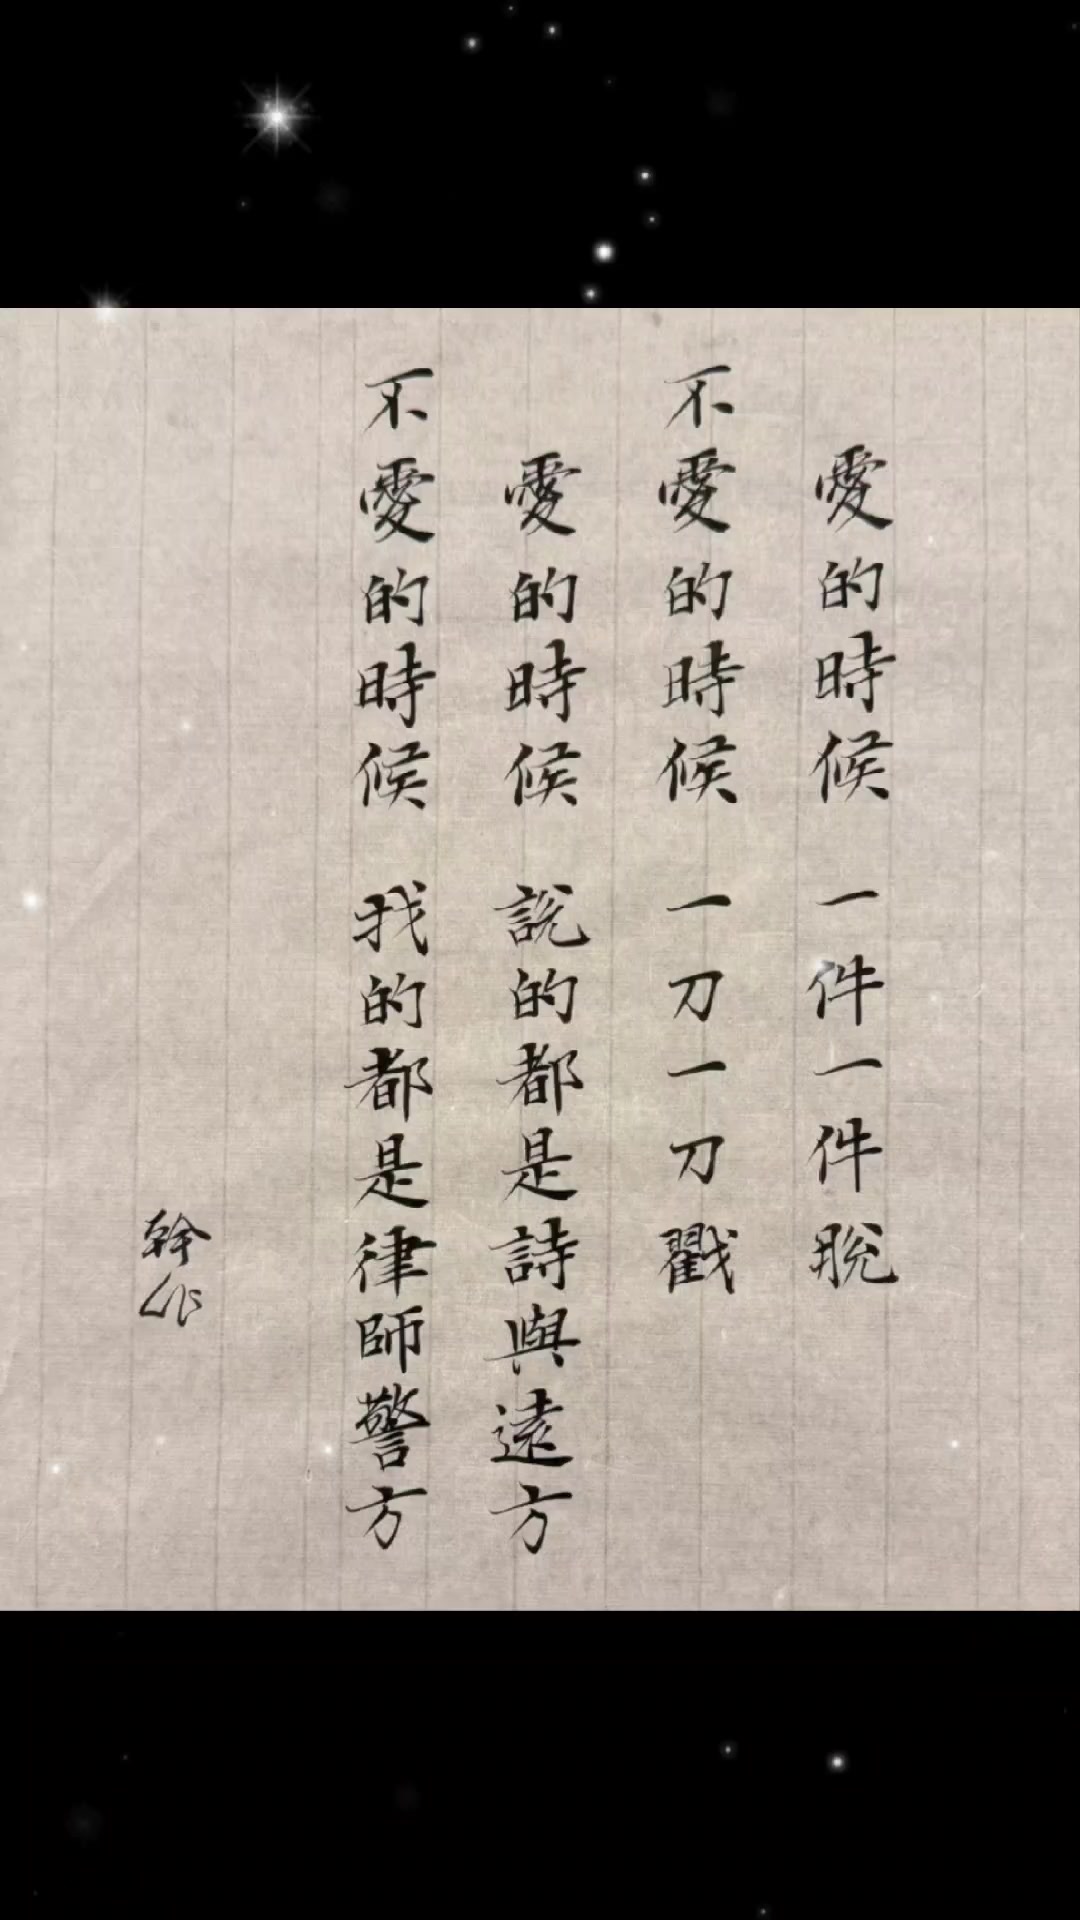 愛的時候 一件一件脫
不愛的時候 一刀一刀戳
愛的時候 說的都是詩與遠方
不愛的時候 找的都是律師警方
幹作